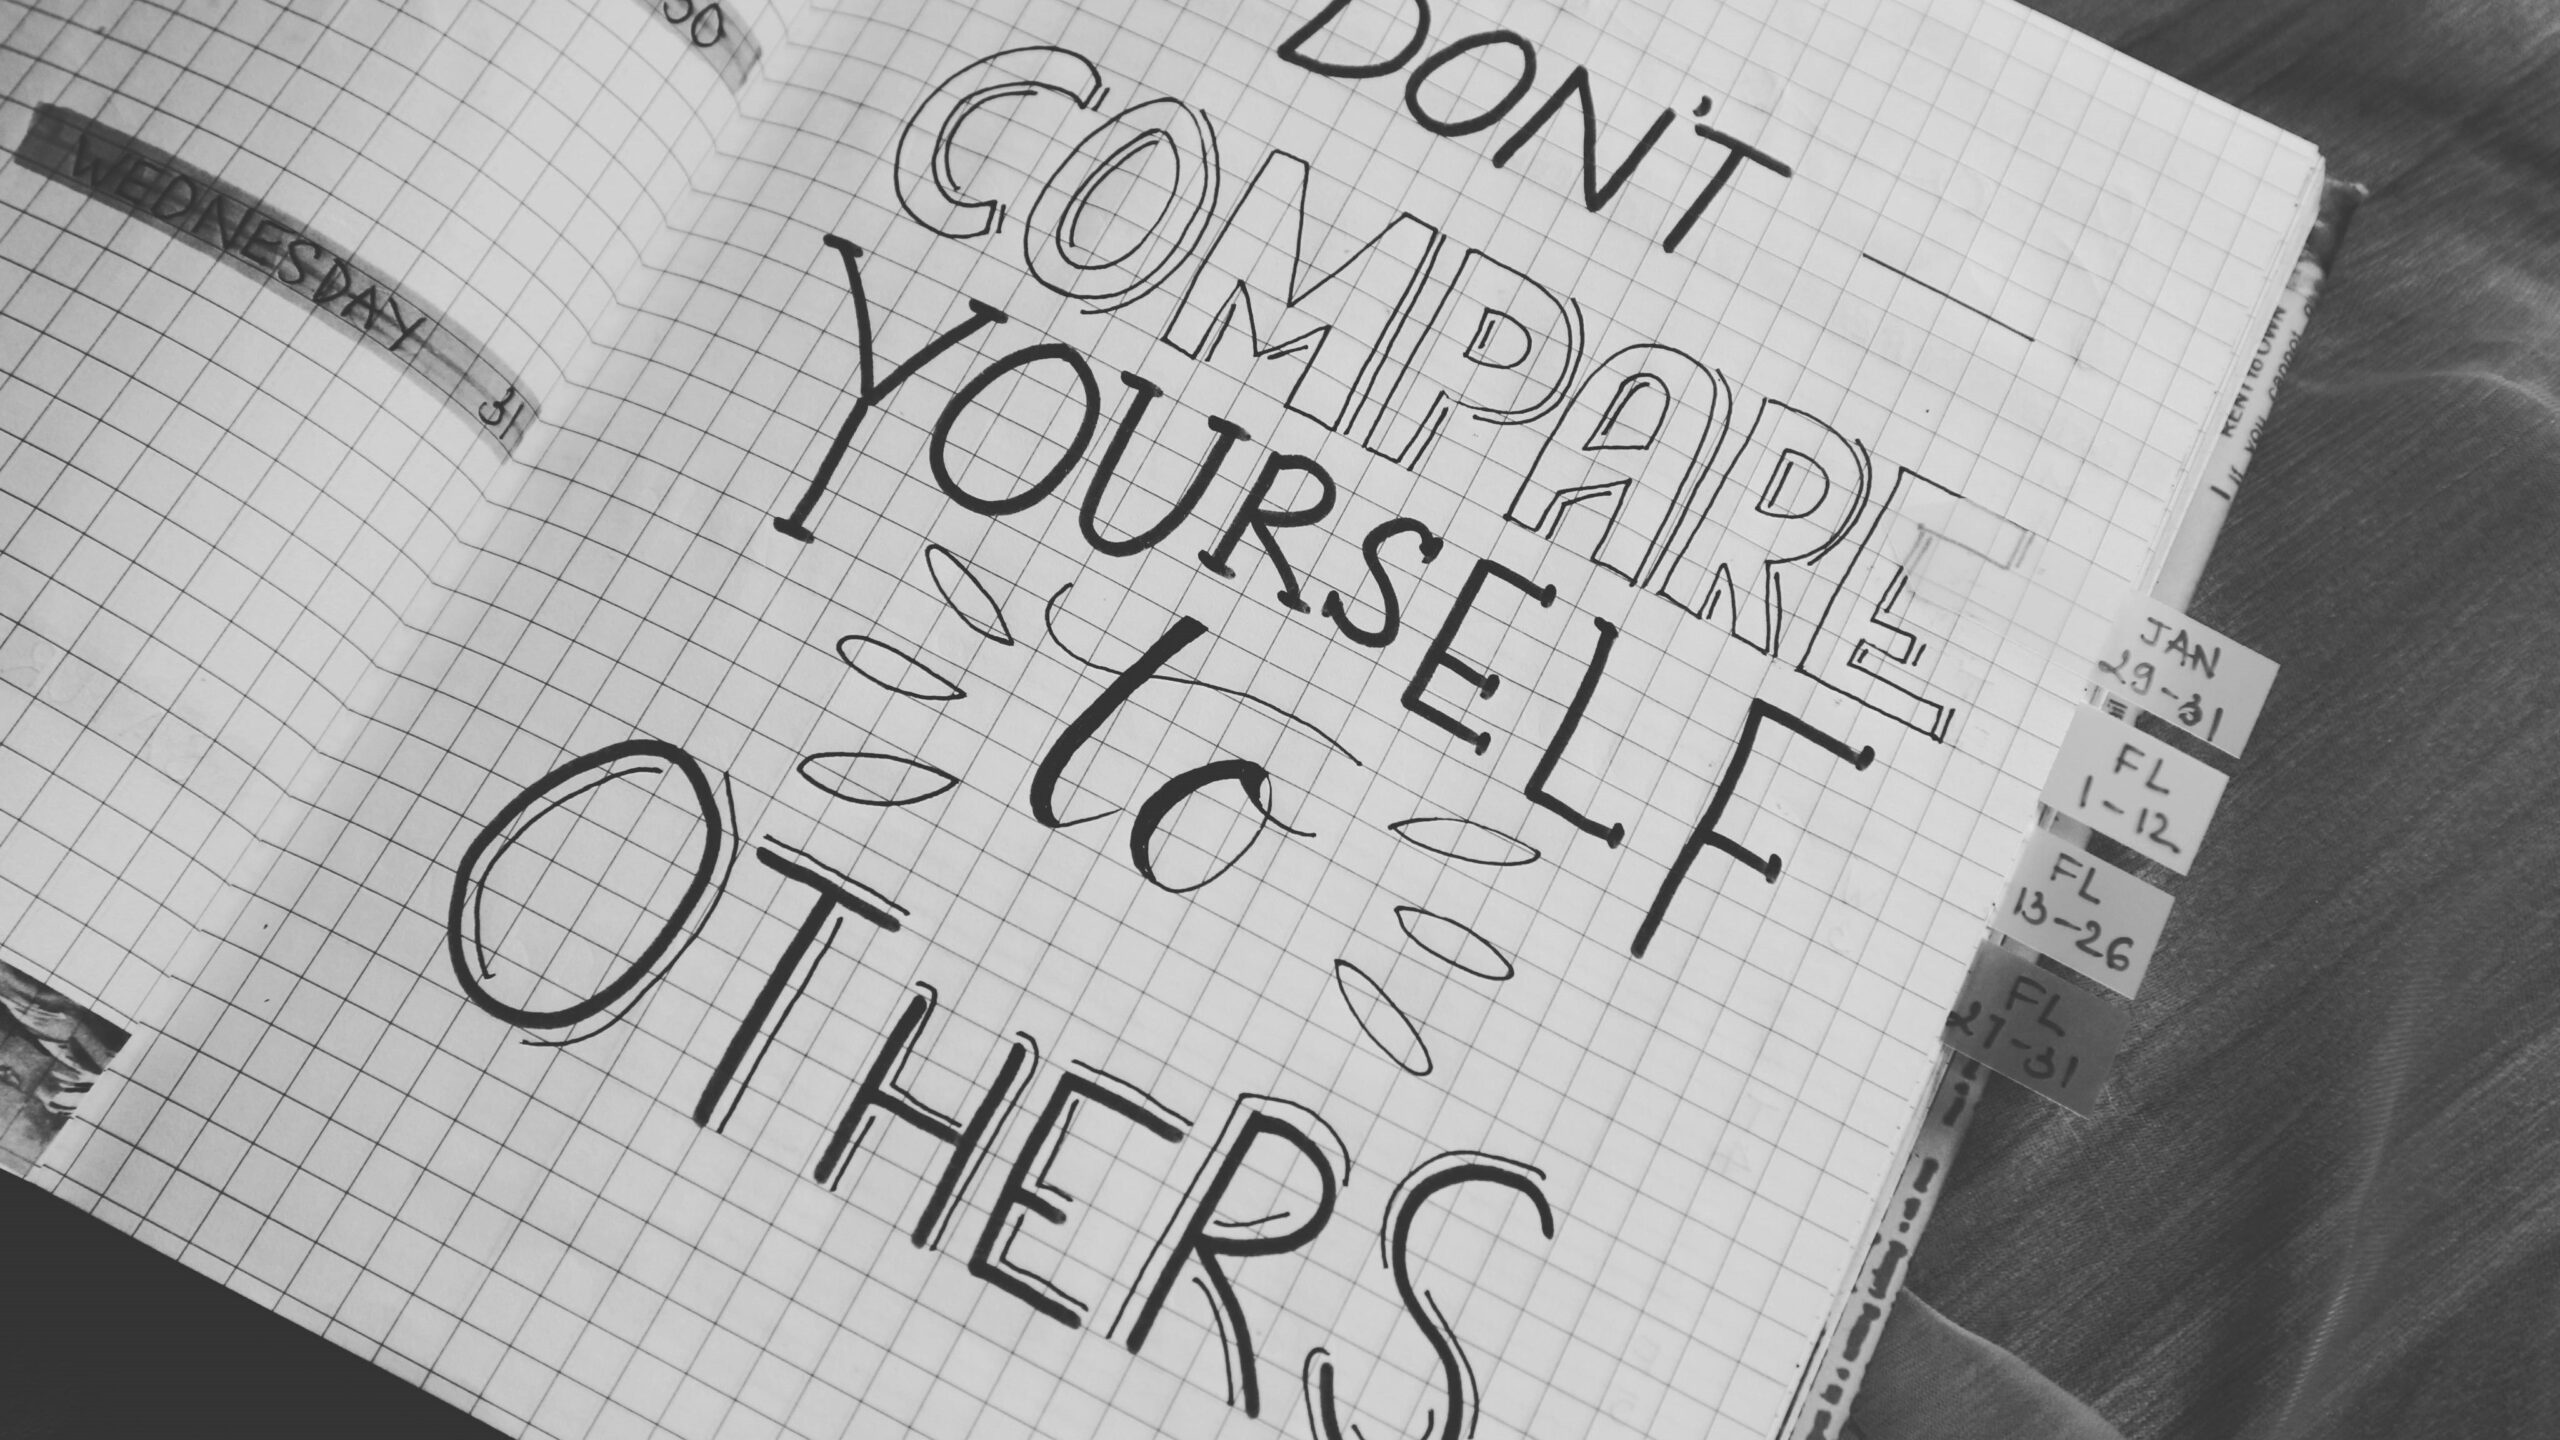 30
WEDNESDAY 31
DON'T
COMPARE
YOURSELF
to
OTHERS
JAN
29-31
FL
1-12
FL
13-26
FL
27-31
RENT to OWN
if you cannot